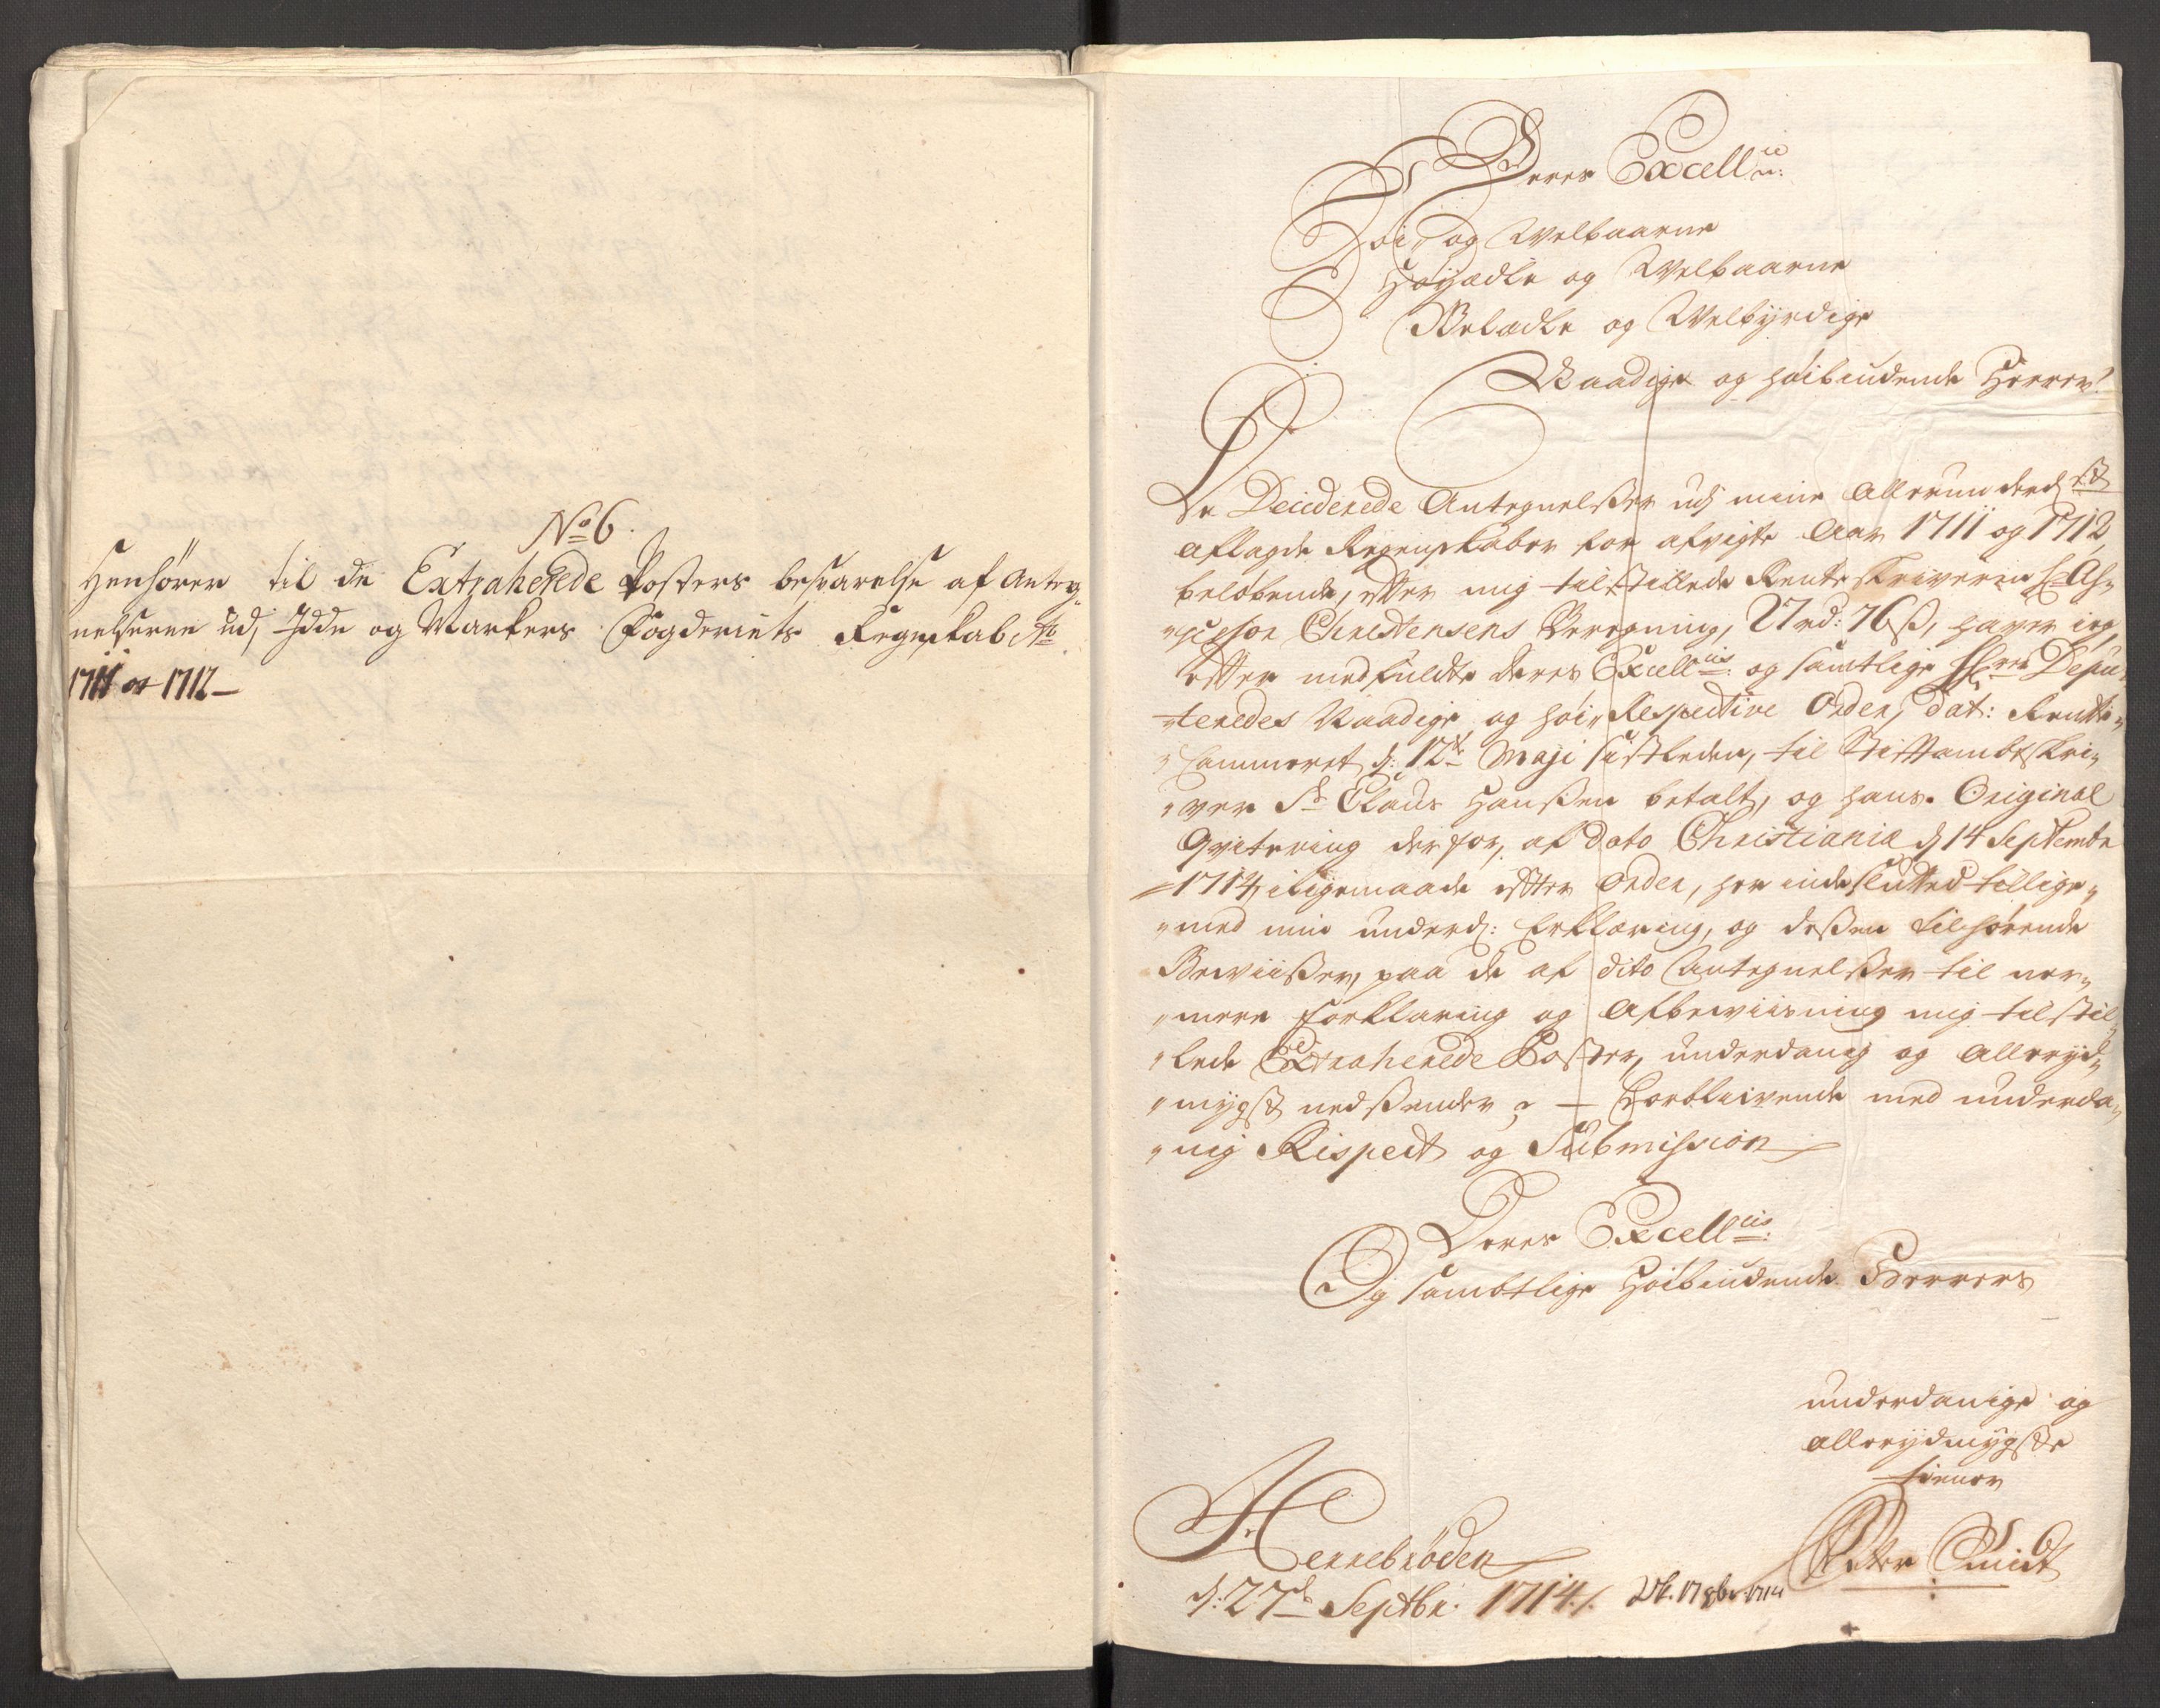 No 6.
Henhörer til de Extraherede Posters besvarelse af Anteg-
nelserne ud, Idde og Markers Fogderiets Regnskab Ao
1711 og 1712 -
Deres Excell
Høi- og Welbaarne
Høyædle og Welbaarne
Velædle og Welbyrdige
Naadige og høibiudende Herrer!
De Deciderede Antegnelßer udj mine Allerunderdst
aflagde Regenskaber for afvigte Aar 1711 og 1712,
beløbende, efter mig tilstillede Rente skriveren Hr As-
sessor Christensens Beregning, 27 rd: 76 ß, haver ieg,
efter medfuldte deres Excelliis og samtlige HErrs Depu-
teredes Naadige og høi-Respective Orden, dat: Rentte-
Cammeret d: 12te Maji sistleden, til Stiftamtskri-
ver Sr Claus Hanßen betalt, og hans Original
Qvitering derfor, af dato Christiania d 14 Septembr
1714, iligemaade efter Orden, her indeslutted tillige-
med min underd: Erklæring, og deßen tilhørende
Bewiißer, paa de af dito Antegnelßer til nær-
mere forklaring og Afbewiisning mig tilstil-
lede Extraherede Poster, underdanig og Alleryd-
mygst nedßender, - Forbliwende med underda-
nig Respect og Submission
Deres Excelliis
Og samtlige Høibiudende Herrers
underdanige og
allerydmygste
tiener
Peter Smidt
Herrebrøden
d: 27de Septbr: 1714 /.
17 8br 1714